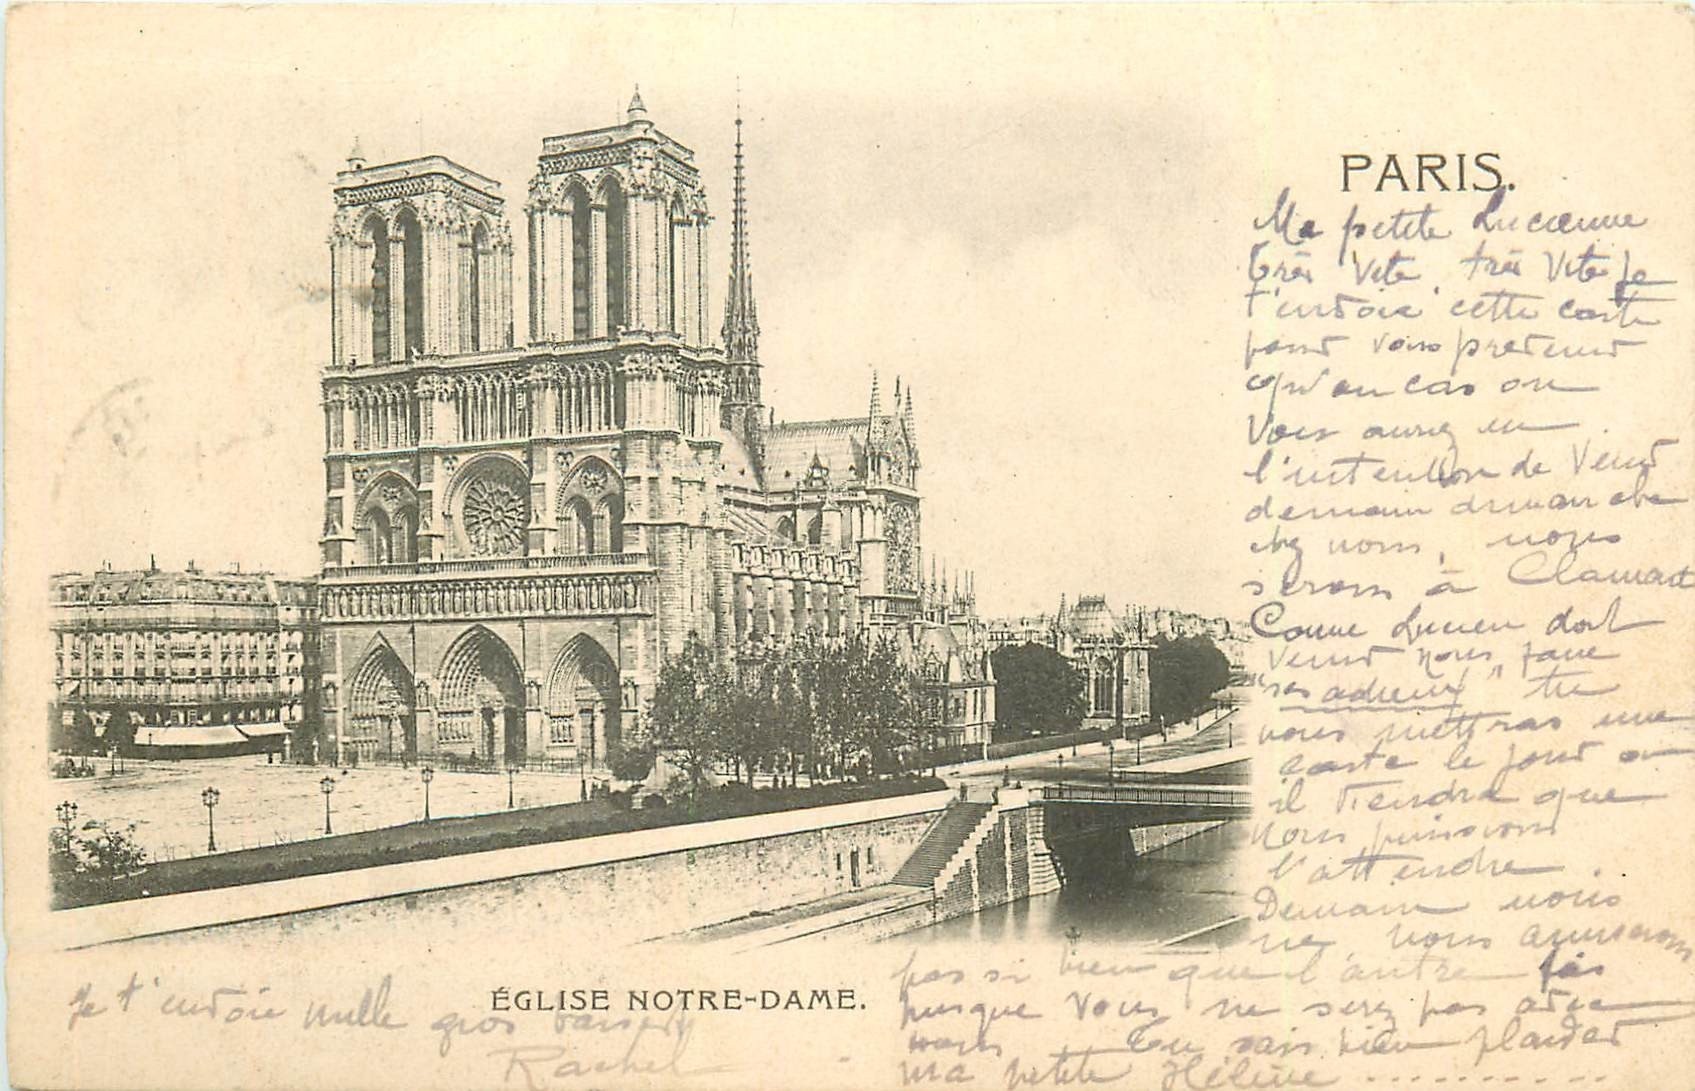 PARIS.
Ma petite Lucienne
très vite, très vite je
t'envoie cette carte
pour vous prévenir
qu'au cas ou
vous auriez eu
l'intention de venir
demain dimanche
chez nous, nous
serons à Clamart
Comme Lucien doit
venir nous faire
"ses adieux" tu
nous mettras une
carte le jour ou
il viendra que
nous puissions
l'attendre.
Demain nous
ne nous amuserons
pas si bien que l'autre fois
puisque vous ne serez pas avec
nous Tu sais bien plaider
ma petite Hélène ...........
ÉGLISE NOTRE-DAME.
Je t'envoie mille gros baisers
Rachel